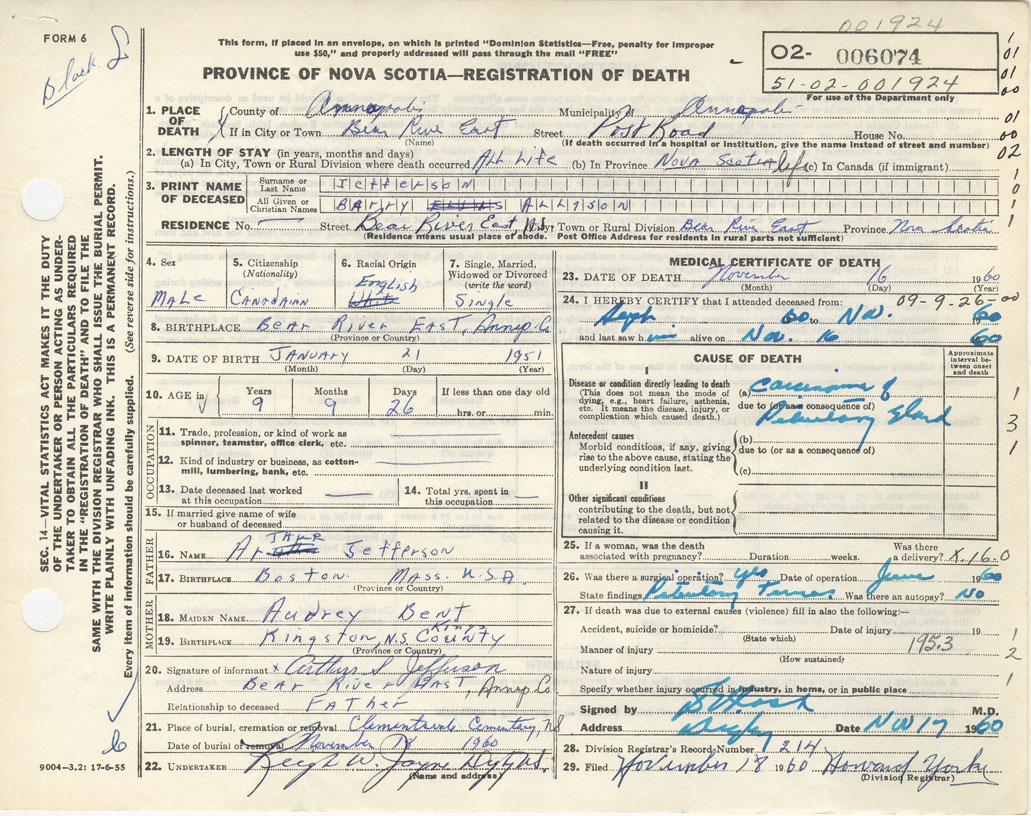 001924
FORM 6
Black.
This form, if placed in an envelope, on which is printed "Dominion Statistics—Free, penalty for improper
use $50," and properly addressed will pass through the mail "FREE"
O2- 006074
51-02-001924
For use of the Department only
PROVINCE OF NOVA SCOTIA—REGISTRATION OF DEATH
1. PLACE OF DEATH County of Annapolis Municipality of Annapolis
If in City or Town Bear River East Street Post Road House No.
(Name) (If death occurred in a hospital or Institution, give the name instead of street and number)
2. LENGTH OF STAY (in years, months and days)
(a) In City, Town or Rural Division where death occurred All Life (b) In Province Nova Scotia life (c) In Canada (if immigrant)
3. PRINT NAME OF DECEASED Surname or Last Name Jefferson
All Given or Christian Names Barry Allison
RESIDENCE No. Street Bear River East, N.S. City, Town or Rural Division Bear River East Province Nova Scotia
(Residence means usual place of abode. Post Office Address for residents in rural parts not sufficient)
4. Sex 5. Citizenship (Nationality) 6. Racial Origin 7. Single, Married, Widowed or Divorced (write the word)
Male Canadian English White Single
8. BIRTHPLACE Bear River East, Annap. Co
(Province or Country)
9. DATE OF BIRTH January 21 1951
(Month) (Day) (Year)
10. AGE in Years Months Days If less than one day old
9 9 26 hrs. or min.
OCCUPATION
11. Trade, profession, or kind of work as
spinner, teamster, office clerk, etc.
12. Kind of industry or business, as cotton-
mill, lumbering, bank, etc.
13. Date deceased last worked at this occupation 14. Total yrs. spent in this occupation
15. If married give name of wife
or husband of deceased
FATHER
16. NAME Jefferson
17. BIRTHPLACE Boston Mass. U.S.A.
(Province or Country)
MOTHER
18. MAIDEN NAME Audrey Bent
19. BIRTHPLACE Kingston, N.S. Kings County
(Province or Country)
20. Signature of informant x Arthur S Jefferson
Address Bear River East, Annap. Co
Relationship to deceased Father
21. Place of burial, cremation or removal Cemetery, NS
Date of burial or removal November 1960
22. UNDERTAKER
(Name and address)
9004-3.2: 17-6-55
SEC. 14—VITAL STATISTICS ACT MAKES IT THE DUTY
OF THE UNDERTAKER OR PERSON ACTING AS UNDER-
TAKER TO OBTAIN ALL THE PARTICULARS REQUIRED
IN THE "REGISTRATION OF DEATH" AND TO FILE THE
SAME WITH THE DIVISION REGISTRAR WHO SHALL ISSUE THE BURIAL PERMIT.
WRITE PLAINLY WITH UNFADING INK. THIS IS A PERMANENT RECORD.
Every item of information should be carefully supplied. (See reverse side for instructions.)
MEDICAL CERTIFICATE OF DEATH
23. DATE OF DEATH November 16 1960
(Month) (Day) (Year)
24. I HEREBY CERTIFY that I attended deceased from: 09-9-26-00
Sept 60 to Nov. 1960
and last saw him alive on Nov. 16 60
CAUSE OF DEATH
Approximate interval between onset and death
I
Disease or condition directly leading to death
(This does not mean the mode of
dying, e.g., heart failure, asthenia,
etc. It means the disease, injury, or
complication which caused death.)
(a) Carcinoma of
due to (or as a consequence of)
Pituitary Gland
Antecedent causes
Morbid conditions, if any, giving
rise to the above cause, stating the
underlying condition last.
(b)
due to (or as a consequence of)
(c)
II
Other significant conditions
contributing to the death, but not
related to the disease or condition
causing it.
25. If a woman, was the death
associated with pregnancy? Duration weeks. Was there a delivery? X.16.0
26. Was there a surgical operation? yes Date of operation June 1960
State findings Pituitary Tumor Was there an autopsy? No
27. If death was due to external causes (violence) fill in also the following:—
Accident, suicide or homicide? Date of injury 19
(State which)
Manner of injury 195.3
(How sustained)
Nature of injury
Specify whether injury occurred in industry, in home, or in public place
Signed by M.D.
Address Digby Date Nov 17 1960
28. Division Registrar's Record Number 214
29. Filed November 18 1960 Howard Yorke
(Division Registrar)